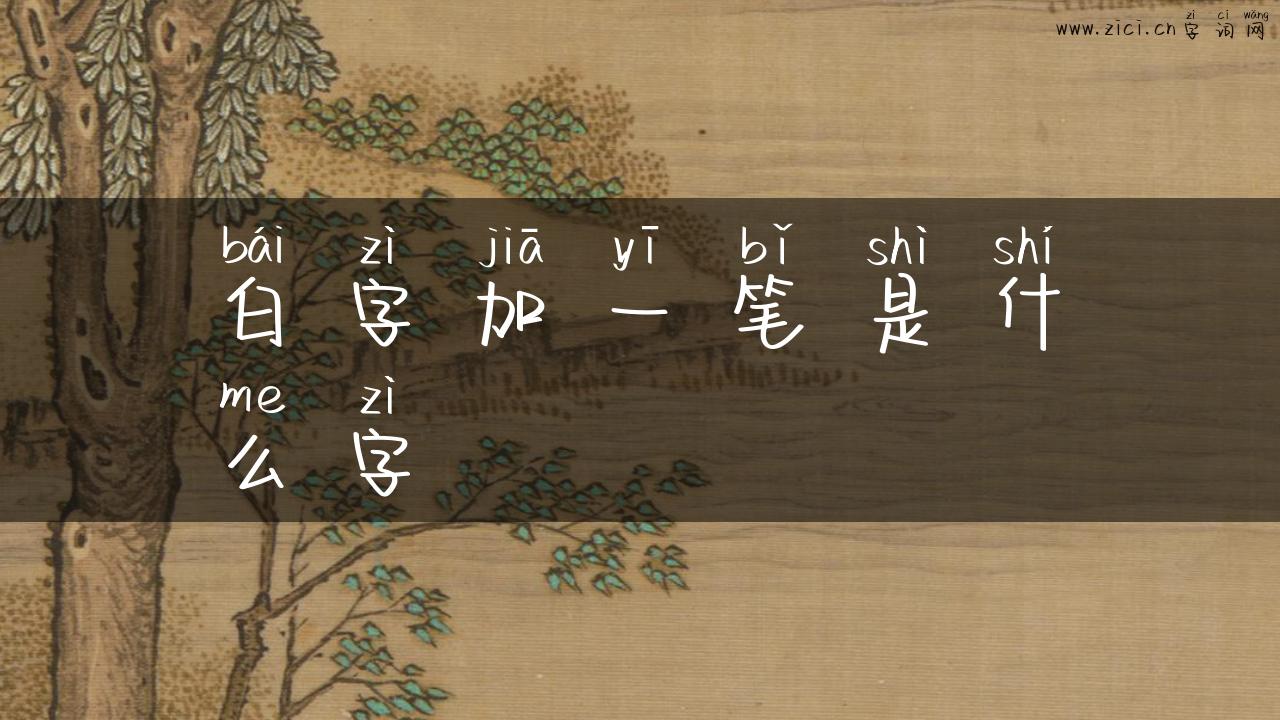 zì cí wǎng
www.zici.cn 字词网
bái zì jiā yī bǐ shì shí
白字加一笔是什
me zì
么字